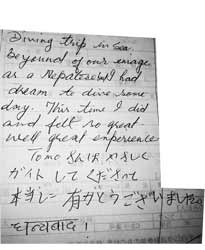 Diving trip in Sea.
Beyound of our image
as a Nepalese I had
dream to dive some
day. This time I did
and felt so great
well great experience
Tomo さんは やさしく
ガイド して くださって
本当に 有がとうございました。
धन्यवाद !